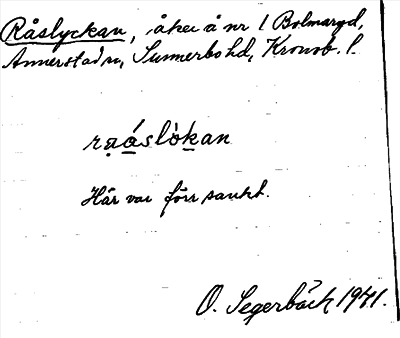 Råslyckan, åker å nr 1 Bolmaryd,
Annerstad sn, Sunnerbo hd, Kronob. l.
raåslòkan
Här var förr sankt.
O. Segerbäck 1941.